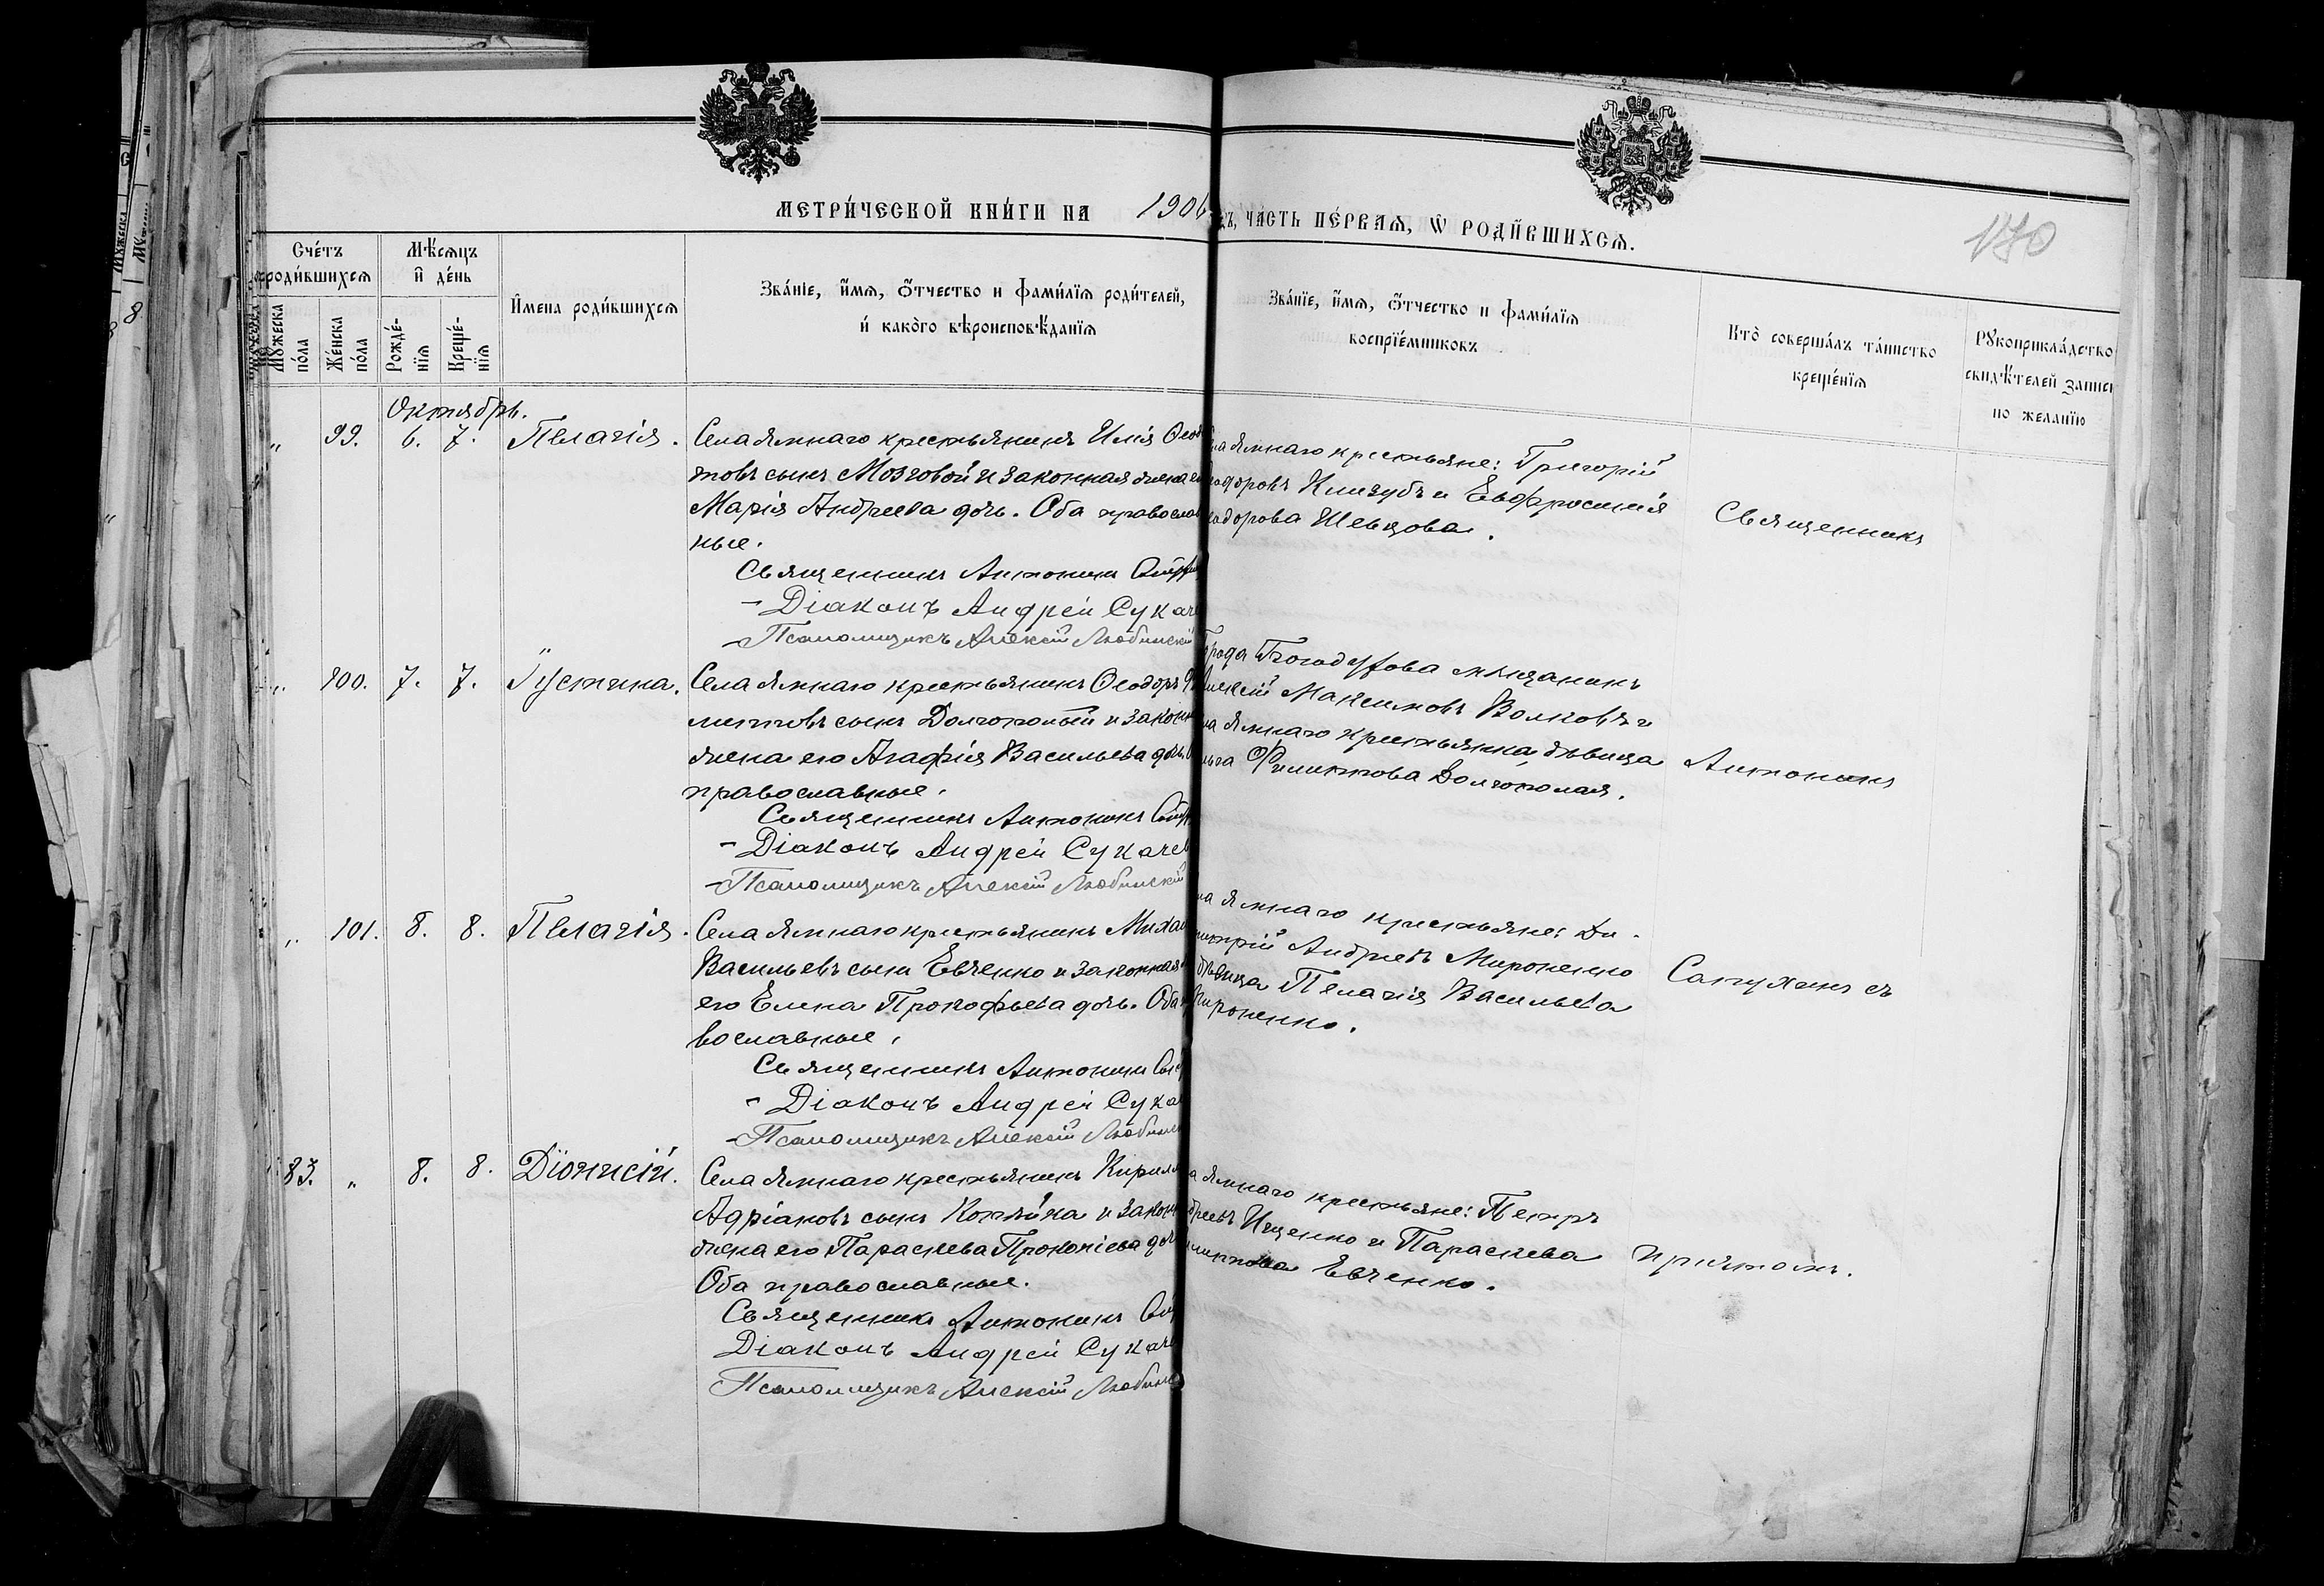 МЕТРИ́ЧЕСКОЙ КНИ́ГИ НА 1906
ЧА́СТЬ ПЕ́РВАЯ, Ѿ РОДИ́ВШИХСЯ.
170
Сче́тъ
роди́вшихся
Мѣ́сяцъ
и҆ де́нь
Мꙋжеска
по́ла
Же́нска
по́ла
Рожде́-
нїя
Креще́-
нїя
И҆мена роди́вшихся
Зва́нїе, и҆́мя, ѻ҆́тчество и фами́лїя роди́телей,
и҆ како́го вѣроисповѣ́данїя
Зва́нїе, и҆́мя, ѻ҆́тчество и фами́лїя
воспрїе́мниковъ
Кто̀ соверша́лъ та́инство
креще́нїя
Рꙋкоприкла́дство
свидѣ́телей записи
по жела́нїю
Октябрь.
„ 99. 6. 7. Пелагія.
Села Ямнаго крестьянинъ Илія
товъ сынъ Мозговой и законная жена
Марія Андреева дочь. Оба православ
ные.
Священникъ Антонинъ
Діаконъ Андрей Сукаче
Псаломщикъ Алексій Любинскій
Ямнаго крестьяне: Григорій
Книзубъ и Евфросинія
Шевцова.
Священникъ
„ 100. 7. 7. Іустина.
Села Ямнаго крестьянинъ Ѳеодоръ
липповъ сынъ Долгополый и законн
жена его Агафія Васильева дочь.
православные.
Священникъ Антонинъ
Діаконъ Андрей Сукачев
Псаломщикъ Алексій Любинскій
Города Богодухова мѣщанинъ
Алексій Максимовъ Волковъ и
Ямнаго крестьянка дѣвица
Филиппова Долгополая.
Антонинъ
„ 101. 8. 8. Пелагія.
Села Ямнаго крестьянинъ Михаи
Васильевъ сынъ Евченко и законная
его Елена Прокофьева дочь. Оба
вославные.
Священникъ Антонинъ
Діаконъ Андрей Сука
Псаломщикъ Алексій Любинск
Ямнаго крестьяне: Ди-
митрій Андреевъ Мироненко
дѣвица Пелагія Васильева
Мироненко.
Сапухинъ съ
83. „ 8. 8. Діонисій.
Села Ямнаго крестьянинъ Кирилл
Адріановъ сынъ и законн
жена его Параскева Прокопіева доч
Оба православные.
Священникъ Антонинъ
Діаконъ Андрей Сукаче
Псаломщикъ Алексій Любинс
Ямнаго крестьяне: Петръ
Ищенко и Параскева
Евченко.
причтомъ.